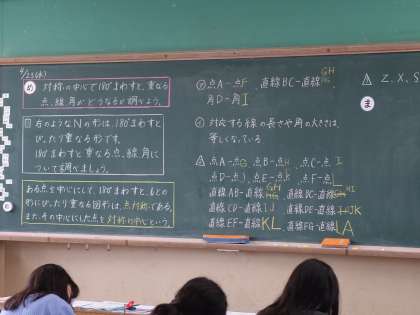 4/25(水)
め 対称の中心で180°まわすと、重なる
点、線、角がどうなるか調べよう。
右のようなNの形は、180°まわすと
ぴったり重なる形です。
180°まわすと重なる点、線、角に
ついて調べましょう。
ある点を中心にして、180°まわすと、もとの
形にぴったり重なる図形は、点対称である。
また、その中心にした点を対称の中心という。
点A−点F 直線BC−直線GH
角D−角I
対応する線の長さや角の大きさは、
等しくなっている
点A−点G 点B−点H 点C−点I
点D−点J 点E−点K 点F−点L
直線AB−直線GH 直線BC−直線HI
直線CD−直線IJ 直線DE−直線JK
直線EF−直線KL 直線FG−直線LA
Z, X, S
ま